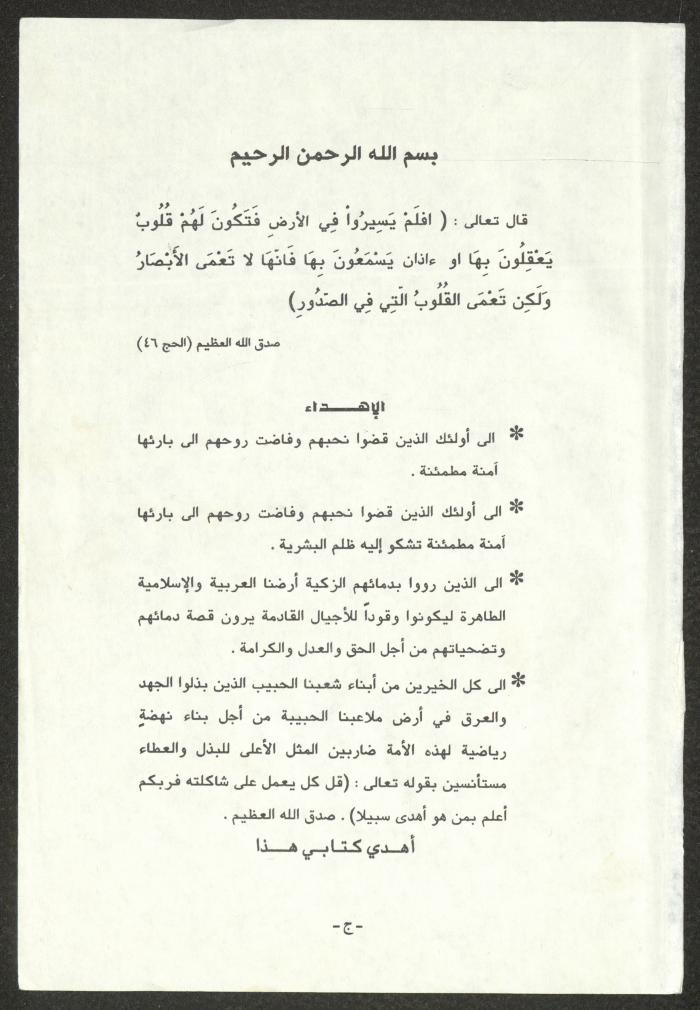 بسم الله الرحمن الرحيم
قال تعالى : ( افلَمْ يَسِيرُواْ فِي الأرضِ فَتَكُونَ لَهُمْ قُلُوبٌ
يَعْقِلُونَ بِهَا او ءاذان يَسْمَعُونَ بِهَا فَانّهَا لا تَعْمَى الأَبْصَارُ
وَلَكِن تَعْمَى القُلُوبُ الّتِي فِي الصّدُورِ)
صدق الله العظيم (الحج ٤٦)
الإهــــداء
* الى أولئك الذين قضوا نحبهم وفاضت روحهم الى بارئها
آمنة مطمئنة .
* الى أولئك الذين قضوا نحبهم وفاضت روحهم الى بارئها
آمنة مطمئنة تشكو إليه ظلم البشرية .
* الى الذين رووا بدمائهم الزكية أرضنا العربية والإسلامية
الطاهرة ليكونوا وقوداً للأجيال القادمة يرون قصة دمائهم
وتضحياتهم من أجل الحق والعدل والكرامة .
* الى كل الخيرين من أبناء شعبنا الحبيب الذين بذلوا الجهد
والعرق في أرض ملاعبنا الحبيبة من أجل بناء نهضةٍ
رياضية لهذه الأمة ضاربين المثل الأعلى للبذل والعطاء
مستأنسين بقوله تعالى : (قل كل يعمل على شاكلته فربكم
أعلم بمن هو أهدى سبيلا) . صدق الله العظيم .
أهـدي كتـابـي هـذا
-ج-